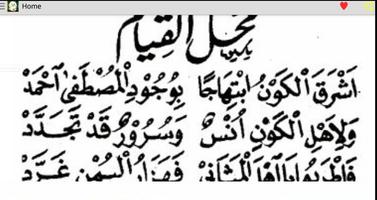 Home
محل القيام
اَشْرَقَ الْكَوْنُ ابْتِهَاجًا بِوُجُودِ الْمُصْطَفَى احْمَدْ
وَلِاَهْلِ الْكَوْنِ اُنْسٌ وَسُرُورٌ قَدْ تَجَدَّدْ
فَاطْرَبُوا يَا اَهْلَ الْمَثَانِيْ فَهَزَارُ الْيُمْنِ غَرَّدْ